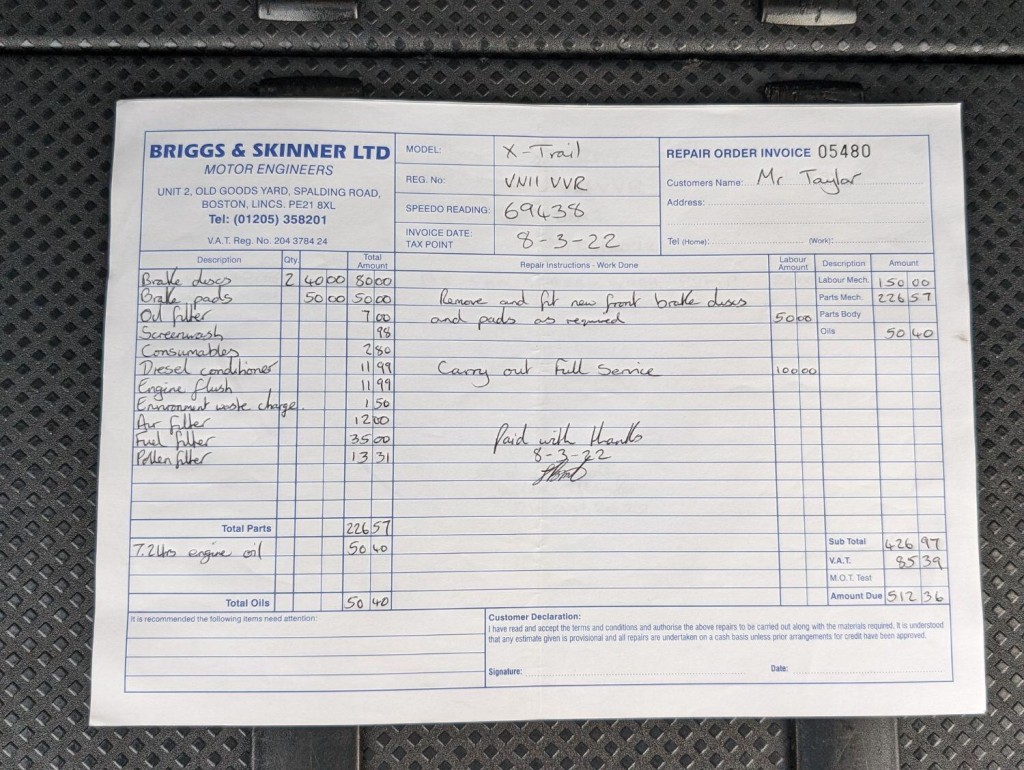 BRIGGS & SKINNER LTD
MOTOR ENGINEERS
UNIT 2, OLD GOODS YARD, SPALDING ROAD,
BOSTON, LINCS. PE21 8XL
Tel: (01205) 358201
V.A.T. Reg. No. 204 3784 24
MODEL: X-Trail
REG. No: VN11 VVR
SPEEDO READING: 69438
INVOICE DATE: TAX POINT 8-3-22
REPAIR ORDER INVOICE 05480
Customers Name: Mr Taylor
Address:
Tel (Home): (Work):
Description Qty. Total Amount
Brake discs 2 40 00 80 00
Brake pads 50 00 50 00
Oil filter 7 00
Screenwash 98
Consumables 2 80
Diesel conditioner 11 99
Engine flush 11 99
Environment waste charge. 1 50
Air filter 12 00
Fuel filter 35 00
Pollen filter 13 31
Total Parts 226 57
7.2 Ltrs engine oil 50 40
Total Oils 50 40
Repair Instructions - Work Done Labour Amount
Remove and fit new front brake discs
and pads as required 50 00
Carry out Full Service 100 00
Paid with thanks
8-3-22
Description Amount
Labour Mech. 150 00
Parts Mech. 226 57
Parts Body
Oils 50 40
Sub Total 426 97
V.A.T. 85 39
M.O.T. Test
Amount Due 512 36
It is recommended the following items need attention:
Customer Declaration:
I have read and accept the terms and conditions and authorise the above repairs to be carried out along with the materials required. It is understood
that any estimate given is provisional and all repairs are undertaken on a cash basis unless prior arrangements for credit have been approved.
Signature: Date: